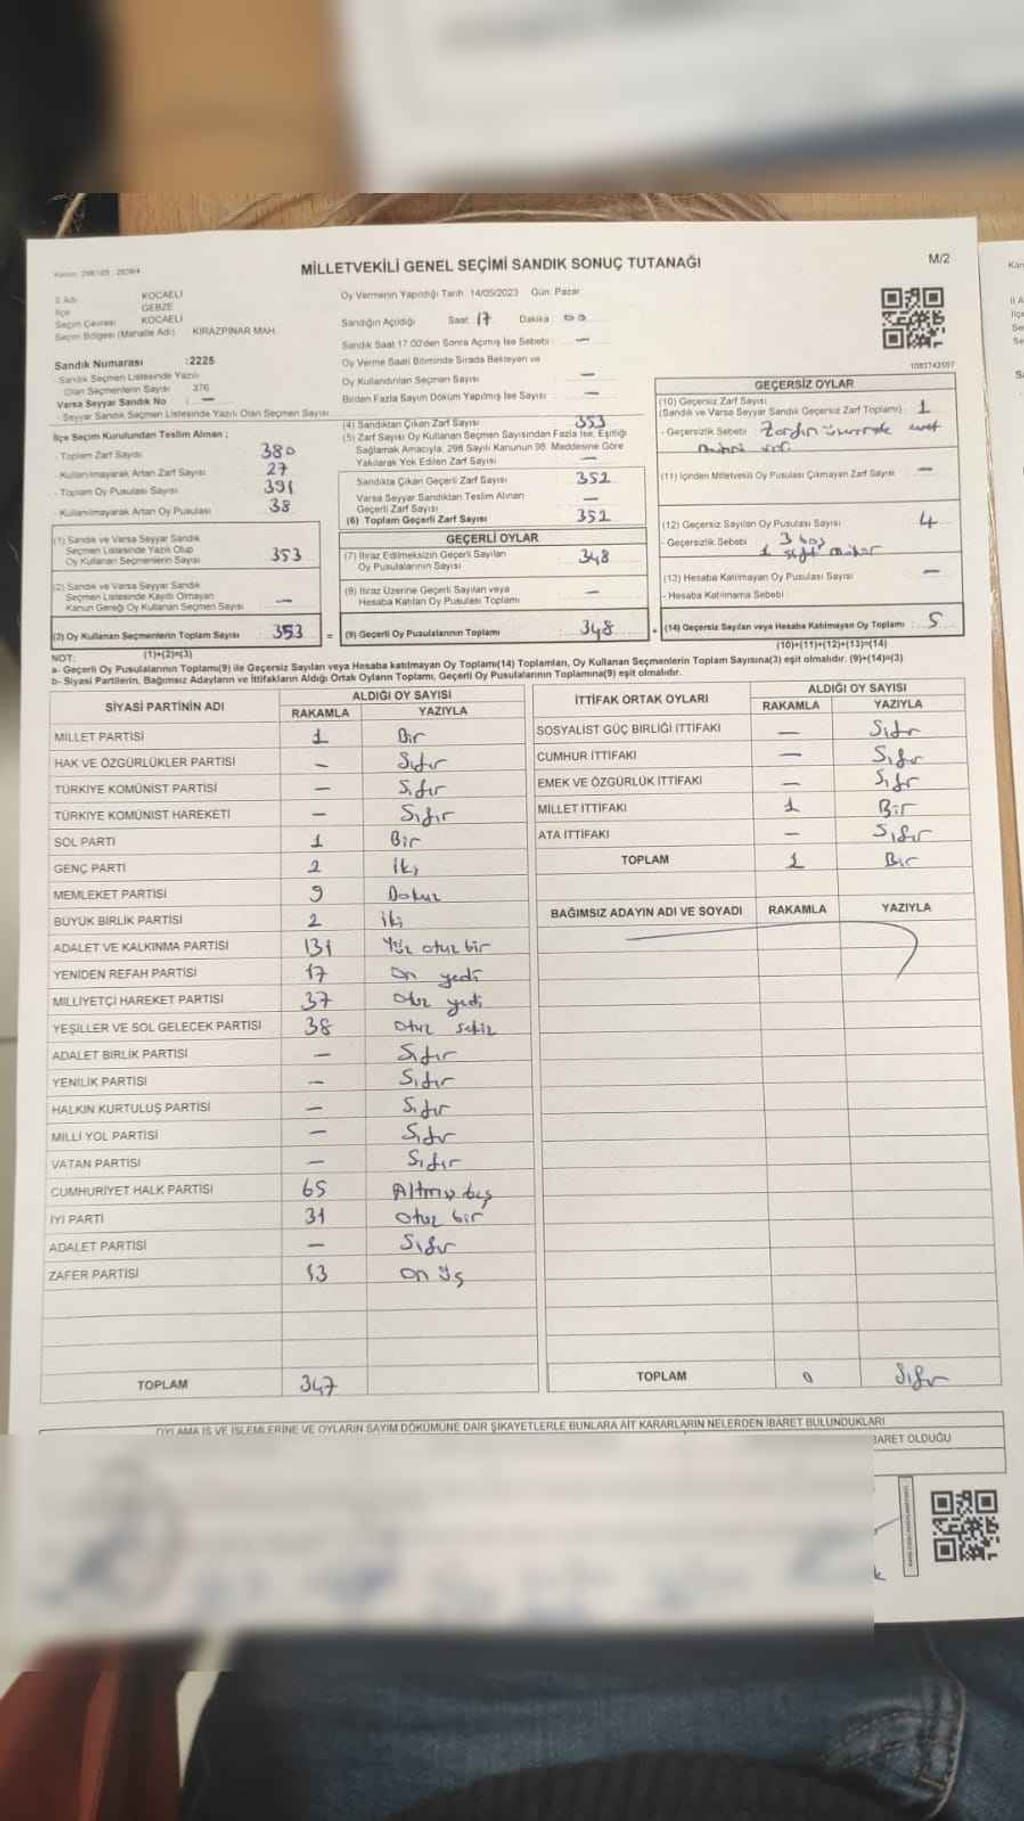 MİLLETVEKİLİ GENEL SEÇİMİ SANDIK SONUÇ TUTANAĞI
M/2
İl Adı : KOCAELİ
İlçe : GEBZE
Seçim Çevresi : KOCAELİ
Seçim Bölgesi (Mahalle Adı) : KİRAZPINAR MAH.
Sandık Numarası :2225
Sandık Seçmen Listesinde Yazılı
Olan Seçmenlerin Sayısı : 376
Varsa Seyyar Sandık No : —
- Seyyar Sandık Seçmen Listesinde Yazılı Olan Seçmen Sayısı
Oy Vermenin Yapıldığı Tarih :14/05/2023 Gün: Pazar
Sandığın Açıldığı Saat: 17 Dakika: 00
Sandık Saat 17.00'den Sonra Açılmış İse Sebebi : —
Oy Verme Saati Bitiminde Sırada Bekleyen ve
Oy Kullandırılan Seçmen Sayısı : —
Birden Fazla Sayım Döküm Yapılmış İse Sayısı : —
İlçe Seçim Kurulundan Teslim Alınan ;
- Toplam Zarf Sayısı : 380
- Kullanılmayarak Artan Zarf Sayısı : 27
- Toplam Oy Pusulası Sayısı : 391
- Kullanılmayarak Artan Oy Pusulası : 38
(1) Sandık ve Varsa Seyyar Sandık
Seçmen Listesinde Yazılı Olup
Oy Kullanan Seçmenlerin Sayısı : 353
(2) Sandık ve Varsa Seyyar Sandık
Seçmen Listesinde Kaydı Olmayan
Kanun Gereği Oy Kullanan Seçmen Sayısı : —
(3) Oy Kullanan Seçmenlerin Toplam Sayısı : 353 =
(1)+(2)=(3)
(4) Sandıktan Çıkan Zarf Sayısı : 353
(5) Zarf Sayısı Oy Kullanan Seçmen Sayısından Fazla İse, Eşitliği
Sağlamak Amacıyla, 298 Sayılı Kanunun 98. Maddesine Göre
Yakılarak Yok Edilen Zarf Sayısı : —
Sandıkta Çıkan Geçerli Zarf Sayısı : 352
Varsa Seyyar Sandıktan Teslim Alınan
Geçerli Zarf Sayısı : —
(6) Toplam Geçerli Zarf Sayısı : 352
GEÇERLİ OYLAR
(7) İtiraz Edilmeksizin Geçerli Sayılan
Oy Pusulalarının Sayısı : 348
(8) İtiraz Üzerine Geçerli Sayılan veya
Hesaba Katılan Oy Pusulası Toplamı : —
(9) Geçerli Oy Pusulalarının Toplamı : 348 +
1083743597
GEÇERSİZ OYLAR
(10) Geçersiz Zarf Sayısı
(Sandık ve Varsa Seyyar Sandık Geçersiz Zarf Toplamı) : 1
- Geçersizlik Sebebi : Zarfın üzerinde evet
mührü var
(11) İçinden Milletvekili Oy Pusulası Çıkmayan Zarf Sayısı : —
(12) Geçersiz Sayılan Oy Pusulası Sayısı : 4
- Geçersizlik Sebebi : 3 boş
1 çift mühür
(13) Hesaba Katılmayan Oy Pusulası Sayısı : —
- Hesaba Katılmama Sebebi :
(14) Geçersiz Sayılan veya Hesaba Katılmayan Oy Toplamı : 5
(10)+(11)+(12)+(13)=(14)
NOT:
a- Geçerli Oy Pusulalarının Toplamı(9) ile Geçersiz Sayılan veya Hesaba katılmayan Oy Toplamı(14) Toplamları, Oy Kullanan Seçmenlerin Toplam Sayısına(3) eşit olmalıdır. (9)+(14)=(3)
b- Siyasi Partilerin, Bağımsız Adayların ve İttifakların Aldığı Ortak Oyların Toplamı, Geçerli Oy Pusulalarının Toplamına(9) eşit olmalıdır.
SİYASİ PARTİNİN ADI ALDIĞI OY SAYISI
RAKAMLA YAZIYLA
MİLLET PARTİSİ 1 Bir
HAK VE ÖZGÜRLÜKLER PARTİSİ — Sıfır
TÜRKİYE KOMÜNİST PARTİSİ — Sıfır
TÜRKİYE KOMÜNİST HAREKETİ — Sıfır
SOL PARTİ 1 Bir
GENÇ PARTİ 2 İki
MEMLEKET PARTİSİ 9 Dokuz
BÜYÜK BİRLİK PARTİSİ 2 iki
ADALET VE KALKINMA PARTİSİ 131 Yüz otuz bir
YENİDEN REFAH PARTİSİ 17 On yedi
MİLLİYETÇİ HAREKET PARTİSİ 37 Otuz yedi
YEŞİLLER VE SOL GELECEK PARTİSİ 38 Otuz sekiz
ADALET BİRLİK PARTİSİ — Sıfır
YENİLİK PARTİSİ — Sıfır
HALKIN KURTULUŞ PARTİSİ — Sıfır
MİLLİ YOL PARTİSİ — Sıfır
VATAN PARTİSİ — Sıfır
CUMHURİYET HALK PARTİSİ 65 Altmış beş
İYİ PARTİ 31 Otuz bir
ADALET PARTİSİ — Sıfır
ZAFER PARTİSİ 13 On üç
TOPLAM 347
İTTİFAK ORTAK OYLARI ALDIĞI OY SAYISI
RAKAMLA YAZIYLA
SOSYALİST GÜÇ BİRLİĞİ İTTİFAKI — Sıfır
CUMHUR İTTİFAKI — Sıfır
EMEK VE ÖZGÜRLÜK İTTİFAKI — Sıfır
MİLLET İTTİFAKI 1 Bir
ATA İTTİFAKI — Sıfır
TOPLAM 1 Bir
BAĞIMSIZ ADAYIN ADI VE SOYADI RAKAMLA YAZIYLA
TOPLAM 0 Sıfır
OYLAMA İŞ VE İŞLEMLERİNE VE OYLARIN SAYIM DÖKÜMÜNE DAİR ŞİKAYETLERLE BUNLARA AİT KARARLARIN NELERDEN İBARET BULUNDUKLARI
BARET OLDUĞU